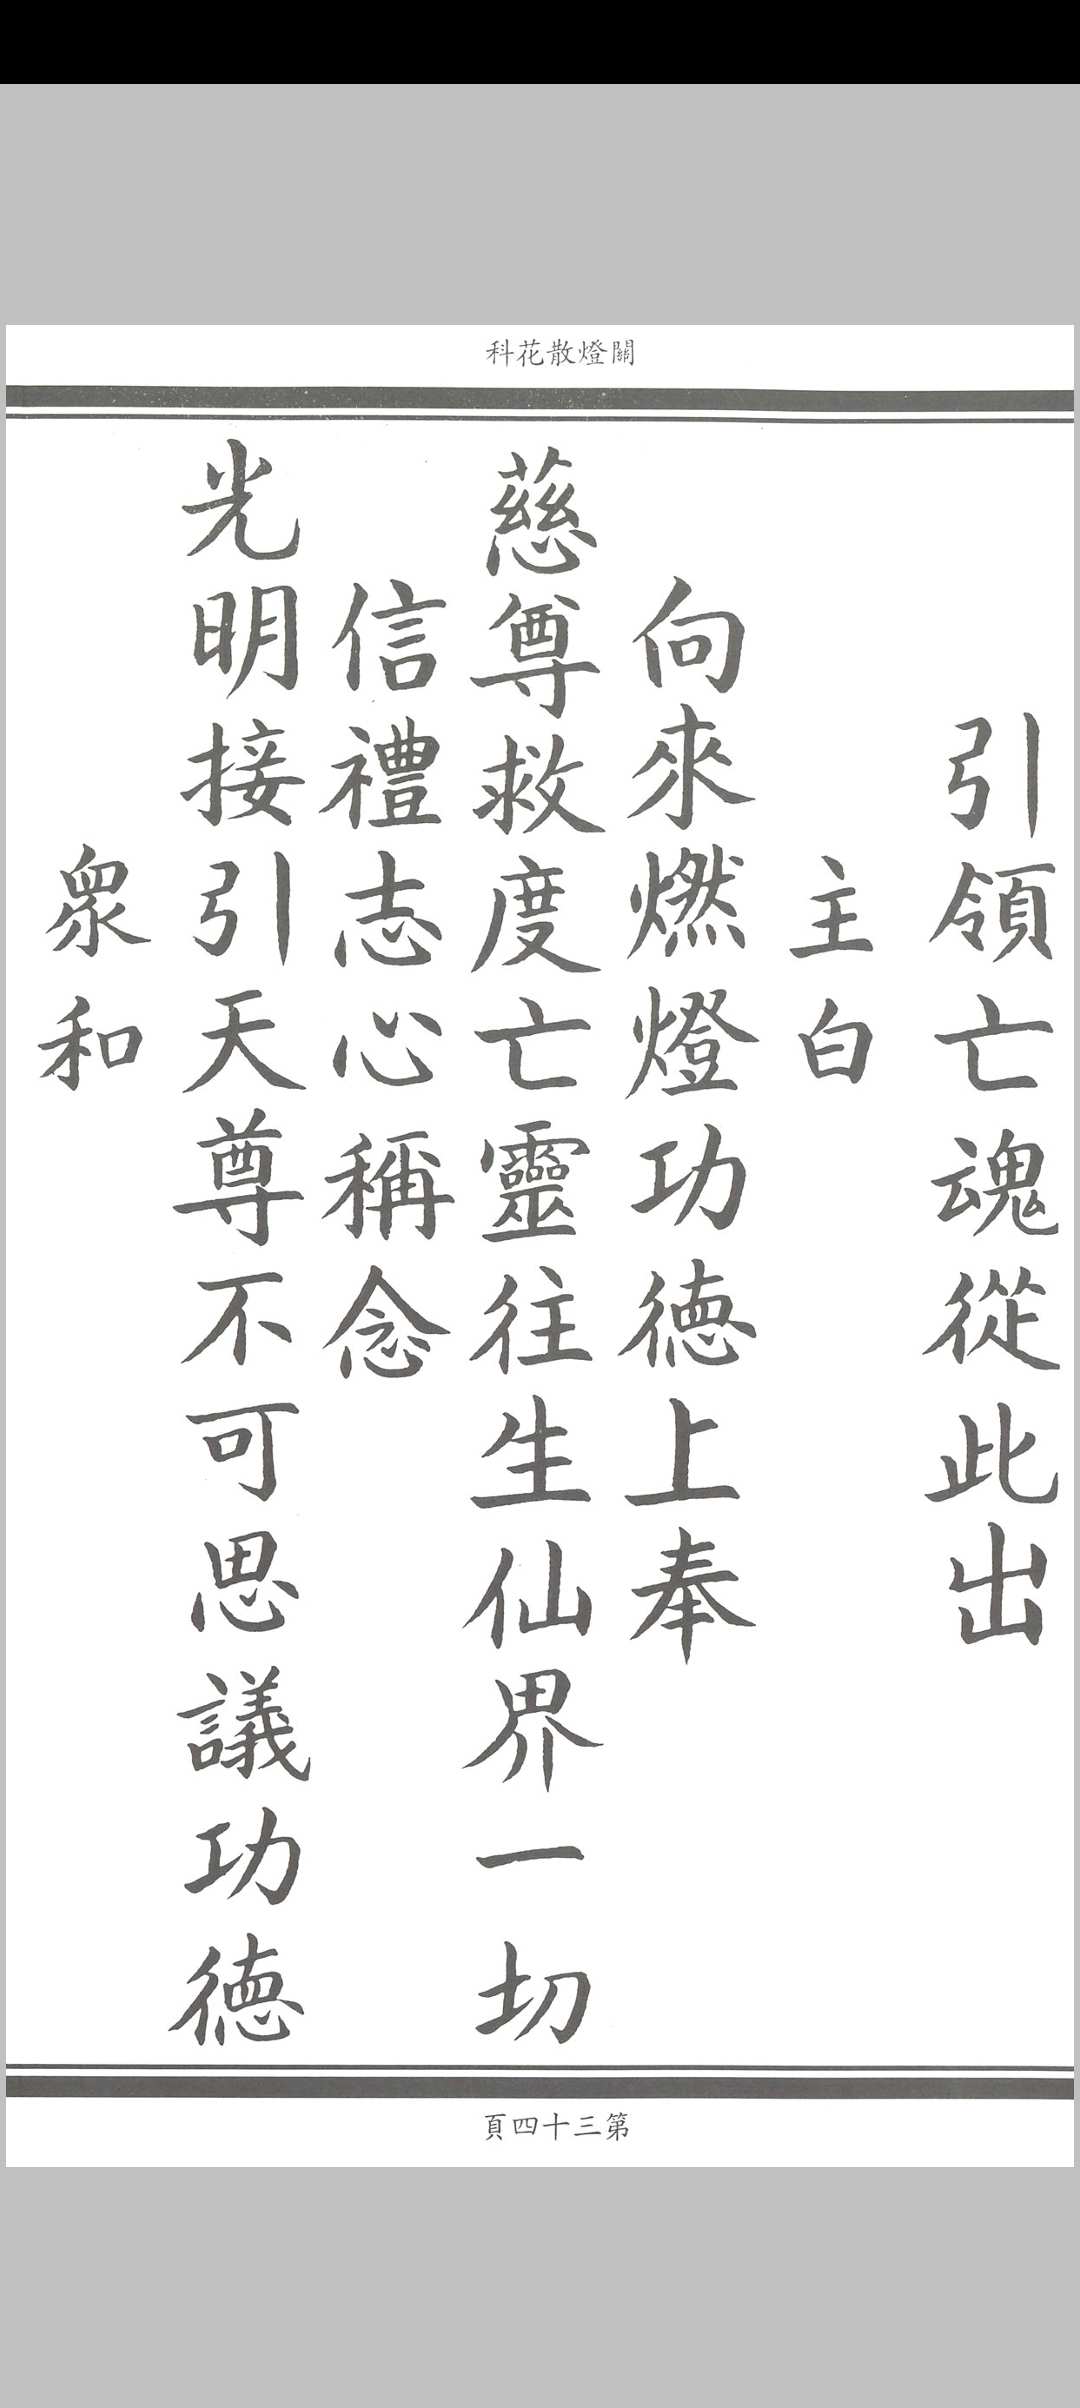 關燈散花科
引領亡魂從此出
主白
向來燃燈功德上奉
慈尊救度亡靈往生仙界一切
信禮志心稱念
光明接引天尊不可思議功德
眾和
第三十四頁